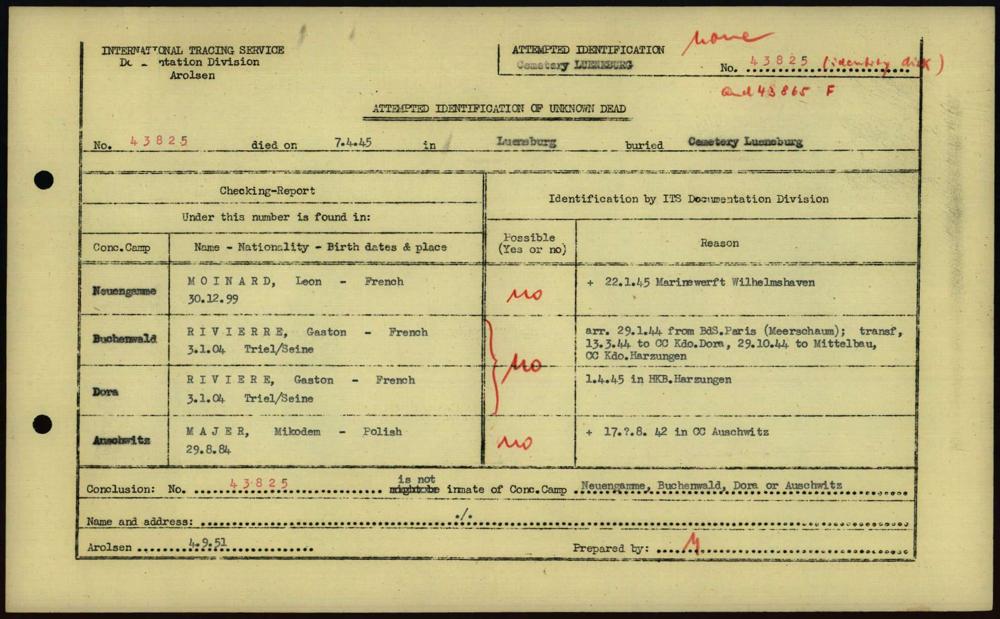 INTERNATIONAL TRACING SERVICE
Documentation Division
Arolsen
ATTEMPTED IDENTIFICATION none
Cemetery LUENEBURG No. 43825 (identity disk)
and 43865 F
ATTEMPTED IDENTIFICATION OF UNKNOWN DEAD
No. 43825 died on 7.4.45 in Lueneburg buried Cemetery Lueneburg
Checking-Report
Identification by ITS Documentation Division
Under this number is found in:
Conc.Camp Name - Nationality - Birth dates & place Possible (Yes or no) Reason
Neuengamme MOINARD, Leon - French no + 22.1.45 Marinewerft Wilhelmshaven
30.12.99
Buchenwald RIVIERRE, Gaston - French no arr. 29.1.44 from BdS.Paris (Meerschaum); transf,
3.1.04 Triel/Seine 13.3.44 to CC Kdo.Dora, 29.10.44 to Mittelbau,
CC Kdo.Harzungen
Dora RIVIERE, Gaston - French 1.4.45 in HKB.Harzungen
3.1.04 Triel/Seine
Auschwitz MAJER, Mikodem - Polish no + 17.?.8. 42 in CC Auschwitz
29.8.84
Conclusion: No. 43825 is not might be inmate of Conc.Camp Neuengamme, Buchenwald, Dora or Auschwitz
Name and address: ./.
Arolsen 4.9.51 Prepared by: